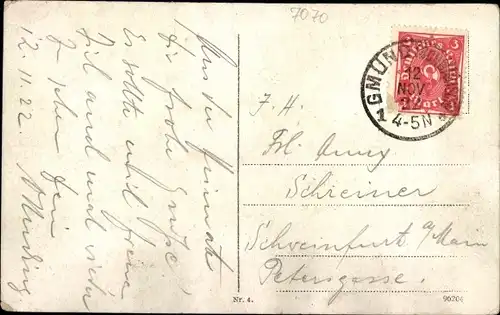 7070
Aus der Heimat
die frohe Grüße.
Es sollte mich freuen
Dich auch mal wieder
zu sehen. Dein
12. 11. 22.
GMÜND
12
NOV
22
1 4-5N
Deutsches Reich
3
Mark
J. H.
Frl. Anny
Schreiner
Schweinfurt a/Main
Petersgasse.
Nr. 4.
96206